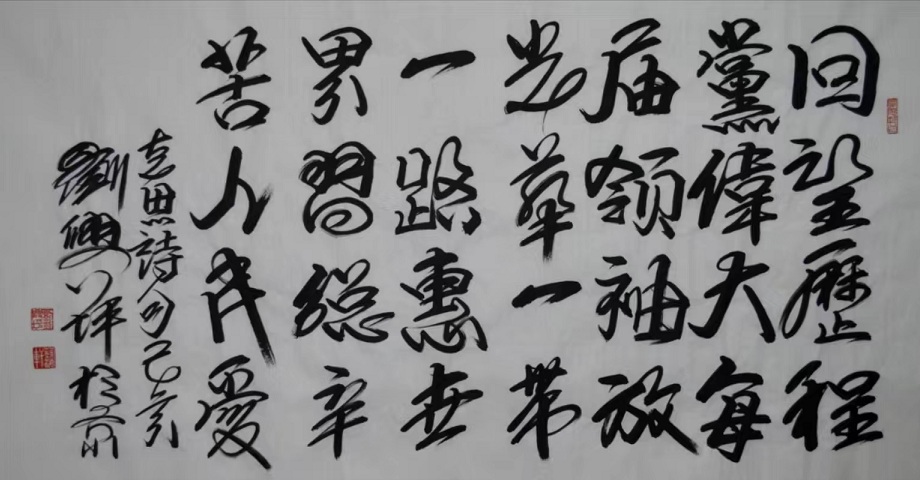 回望歷程
黨偉大每
屆領袖放
光華一帶
一路惠世
界習總辛
苦人民愛
志思詩句己亥
劉於京